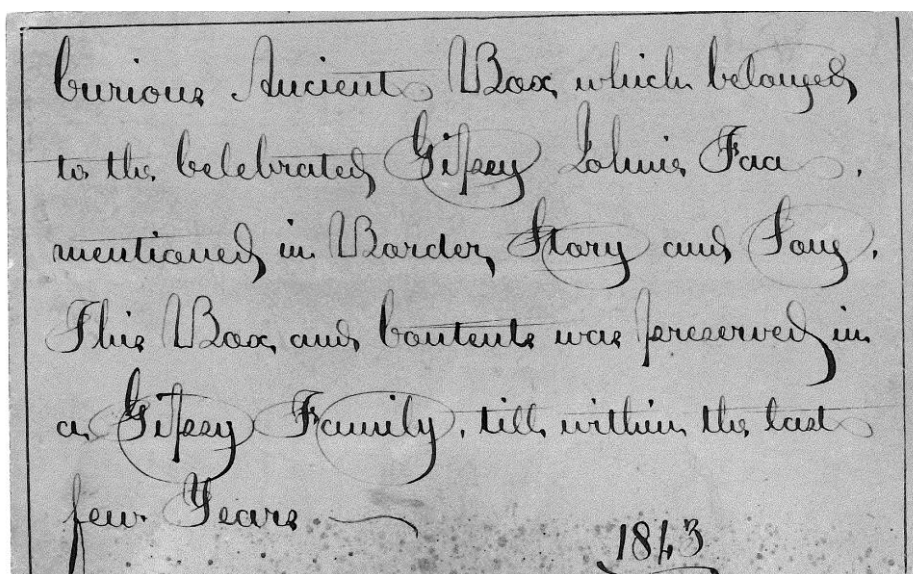 Curious Ancient Box which belonged
to the Celebrated Gipsey Johnie Faa,
mentioned in Border Story and Song.
This Box and Contents was preserved in
a Gipsey Family, till within the last
few Years
1843